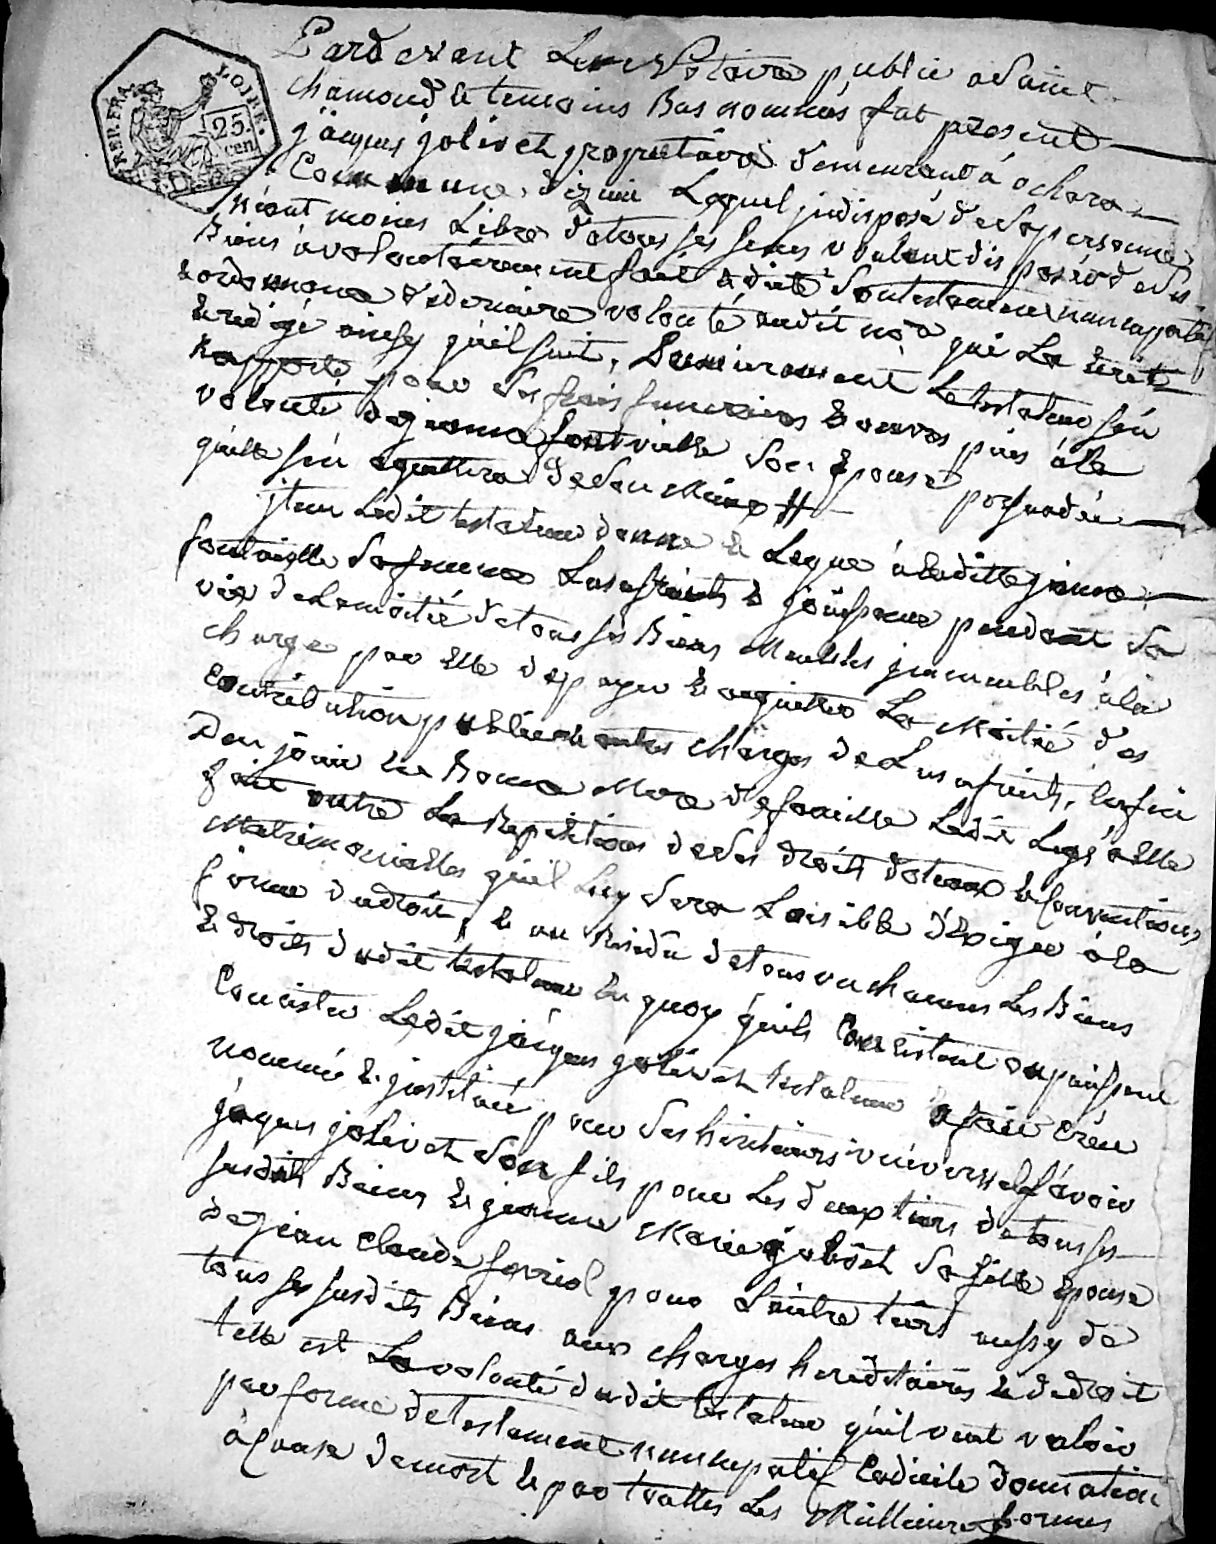 LOIRE.
REP. FRA.
25.
cen.
Pardevant Le Notaire public a Saint
chamond & temoins Bas nommés fut present
jàcques jolivet proprietaire demeurant à ochara
Commune d'izieu Lequel jndisposé de Sa personne
néant moins Libre de tous ses sens voulant disposer de Ses
Biens à volontairement fait & dicté Son testament nuncupatif
& ordonnance de derniere volonté audit no.re qui La Ecrit
& redigé ainsy qu'il suit, Premierement Le testateur s'én
Rapporte pour Ses frais funeraires & œuvres pies à la
volonté de jeanne fontvielle Son Epouse persuadée
qu'elle s'én aquittera de Son Mieux //
jtem Ledit testateur donne & Legue à Laditte jeanne
fontvielle Sa femme Lusufruit & joüissance pendant Sa
vie de La moitié de tous ses Biens Meubles jmmeubles à la
charge par Elle de payer & aquitter La Moitié des
Contribution publique & autres charges de Lusufruit, Enfin
Den joüir En Bonne Mere de famille Ledit Legs à Elle
fait outre La Repetition de Ses droits dotaux & Conventions
Matrimonialles qu'il Luy Sera Loisible d'Exiger à la
forme du droit, & au Residû de tous un chacuns Les Biens
& droits dudit testateur En quoy qu'ils Consistent ou puissent
Consister Ledit jàcques jolivet testateur à fait créé
nommé & jnstitué pour Ses heritiers universels sávoir
jàcques jolivet Son fils pour Les deux tiers de tous ses
susdits Biens & jeanne Marie jolivet Sa fille Epouse
de jean Claude ferriol pour Lautre tiers aussy de
tous ses susdits Biens aux charges hereditaires & de droit
telle est La volonté dudit testateur qu'il veut valoir
par forme de testament nuncupatif Codicile donnation
à Cause de mort & par touttes Les Meilleures formes